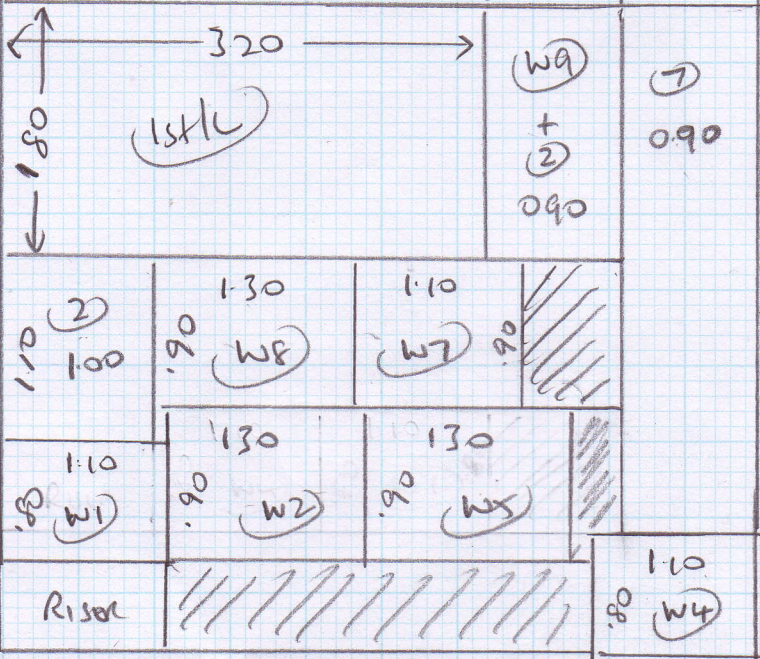 320
1.80
1st/L
W9
+
2
090
7
0.90
2
1.10
1.00
1.30
.90
W8
1.10
W7
.90
1.10
.80
W1
1.30
.90
W2
130
.90
W5
RISER
1.10
.80
W4